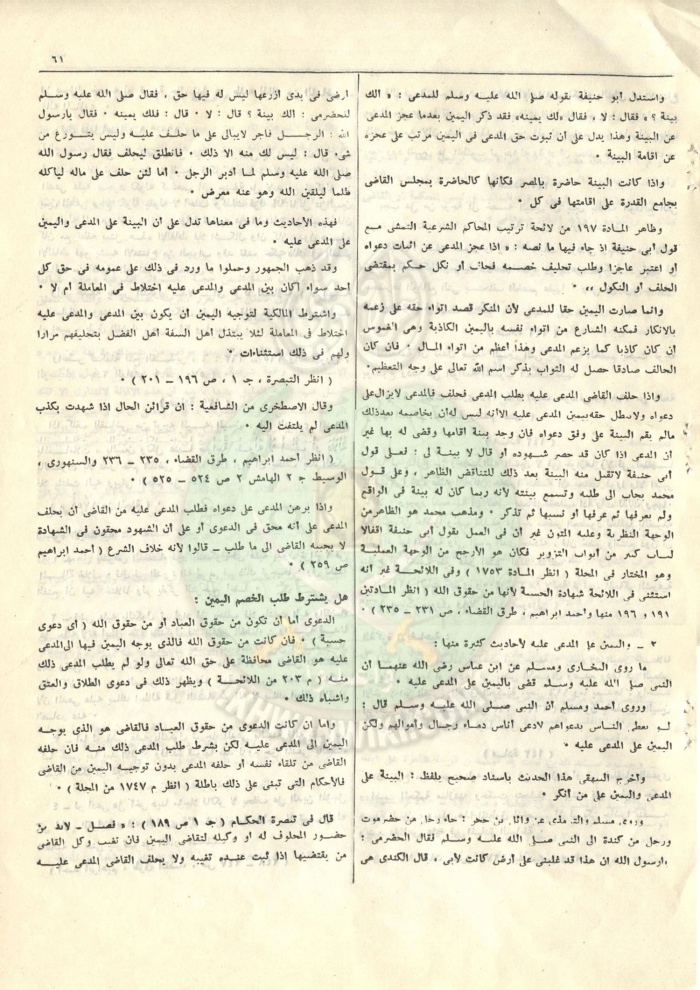 ٦١
واستدل أبو حنيفة بقوله صلى الله عليه وسلم للمدعى : « ألك
بينة ؟ » فقال : لا ، فقال ، لك يمينه، فقد ذكر اليمين بعدما عجز المدعى
عن البينة وهذا يدل على أن ثبوت حق المدعى فى اليمين مرتب على عجزه
عن اقامة البينة ٠
واذا كانت البينة حاضرة بالمصر فكأنها كالحاضرة بمجلس القاضى
بجامع القدرة على اقامتها فى كل ٠
وظاهر المادة ١٩٧ من لائحة ترتيب المحاكم الشرعية التمشى مع
قول أبى حنيفة اذ جاء فيها ما نصه : « اذا عجز المدعى عن اثبات دعواه
أو اعتبر عاجزا وطلب تحليف خصمه فحلف أو نكل حكم بمقتضى
الحلف أو النكول ،، ٠
وانما صارت اليمين حقا للمدعى لأن المنكر قصد اتواء حقه على زعمه
بالانكار فمكنه الشارع من اتواء نفسه باليمين الكاذبة وهى الغموس
ان كان كاذبا كما يزعم المدعى وهذا أعظم من اتواء المال ٠ فان كان
الحالف صادقا حصل له الثواب بذكر اسم الله تعالى على وجه التعظيم٠
واذا حلف القاضى المدعى عليه بطلب المدعى فحلف فالمدعى لايزال على
دعواه ولايبطل حقه بيمين المدعى عليه الا أنه ليس له أن يخاصمه بعد ذلك
مالم يقم البينة على وفق دعواه فان وجد بينة أقامها وقضى له بها غير
أن المدعى اذا كان قد حضر شهوده أو قال لا بينة لى : فعلى قول
أبى حنيفة لاتقبل منه البينة بعد ذلك للتناقض الظاهر ، وعلى قول
محمد يجاب الى طلبه وتسمع بينته لأنه ربما كان له بينة فى الواقع
ولم يعرفها ثم عرفها أو نسيها ثم تذكر ٠ ومذهب محمد هو الظاهر من
الوجهة النظرية وعليه المتون غير أن فى العمل بقول أبى حنيفة اقفالا
لباب كبير من أبواب التزوير فكان هو الأرجح من الوجهة العملية
وهو المختار فى المجلة ( انظر المادة ١٧٥٣ ) وفى اللائحة غير أنه
استثنى فى اللائحة شهادة الحسبة لأنها من حقوق الله ( انظر المادتين
١٩١ و ١٩٦ منها وأحمد ابراهيم ، طرق القضاء ، ص ٢٣١ - ٢٣٥ ) ٠
٢ - واليمين على المدعى عليه لأحاديث كثيرة منها :
ما روى البخارى ومسلم عن ابن عباس رضى الله عنهما أن
النبى صلى الله عليه وسلم قضى باليمين على المدعى عليه ٠
وروى أحمد ومسلم أن النبى صلى الله عليه وسلم قال :
لو يعطى الناس بدعواهم لادعى أناس دماء رجال وأموالهم ولكن
اليمين على المدعى عليه ٠
وأخرج البيهقى هذا الحديث باسناد صحيح بلفظ : البينة على
المدعى واليمين على من أنكر ٠
وروى مسلم والترمذى عن وائل بن حجر : جاء رجل من حضرموت
ورجل من كندة الى النبى صلى الله عليه وسلم فقال الحضرمى :
يارسول الله ان هذا قد غلبنى على أرض كانت لأبى ، قال الكندى هى
أرضى فى يدى أزرعها ليس له فيها حق ، فقال صلى الله عليه وسلم
للحضرمى : ألك بينة ؟ قال : لا ٠ قال : فلك يمينه ٠ فقال يارسول
الله : الرجل فاجر لايبالى على ما حلف عليه وليس يتورع من
شىء قال : ليس لك منه الا ذلك ٠ فانطلق ليحلف فقال رسول الله
صلى الله عليه وسلم لما أدبر الرجل ٠ أما لئن حلف على ماله ليأكله
ظلما ليلقين الله وهو عنه معرض ٠
فهذه الأحاديث وما فى معناها تدل على أن البينة على المدعى واليمين
على المدعى عليه ٠
وقد ذهب الجمهور وحملوا ما ورد فى ذلك على عمومه فى حق كل
أحد سواء أكان بين المدعى والمدعى عليه اختلاط فى المعاملة أم لا ٠
واشترط المالكية لتوجيه اليمين أن يكون بين المدعى والمدعى عليه
اختلاط فى المعاملة لئلا يبتذل أهل السفه أهل الفضل بتحليفهم مرارا
ولهم فى ذلك استثناءات ٠
( انظر التبصرة ، جـ ١ ، ص ١٩٦ - ٢٠١ ) ٠
وقال الاصطخرى من الشافعية : ان قرائن الحال اذا شهدت بكذب
المدعى لم يلتفت اليه ٠
( انظر أحمد ابراهيم ، طرق القضاء ، ٢٣٥ - ٢٣٦ والسنهورى ،
الوسيط جـ ٢ الهامش ٢ ص ٥٢٤ - ٥٢٥ ) ٠
واذا برهن المدعى على دعواه فطلب المدعى عليه من القاضى أن يحلف
المدعى على أنه محق فى الدعوى أو على أن الشهود محقون فى الشهادة
لا يجيبه القاضى الى ما طلب - قالوا لأنه خلاف الشرع ( أحمد ابراهيم
ص ٢٥٩ ) ٠
هل يشترط طلب الخصم اليمين :
الدعوى اما أن تكون من حقوق العباد أو من حقوق الله ( أى دعوى
حسبة ) ٠ فان كانت من حقوق الله فالذى يوجه اليمين فيها الى المدعى
عليه هو القاضى محافظة على حق الله تعالى ولو لم يطلب المدعى ذلك
منه ( م ٢٠٣ من اللائحة ) ويظهر ذلك فى دعوى الطلاق والعتق
وأشباه ذلك ٠
وأما ان كانت الدعوى من حقوق العباد فالقاضى هو الذى يوجه
اليمين الى المدعى عليه لكن بشرط طلب المدعى ذلك منه فان حلفه
القاضى من تلقاء نفسه أو حلفه المدعى بدون توجيه اليمين من القاضى
فالأحكام التى تبنى على ذلك باطلة ( انظر م ١٧٤٧ من المجلة ) ٠
قال فى تبصرة الحكام ( جـ ١ ص ١٨٩ ) : « فصل - لابد من
حضور المحلوف له أو وكيله لتقاضى اليمين فان تغيب وكل القاضى
من يقتضيها اذا ثبت عنده تغيبه ولا يحلف القاضى المدعى عليه